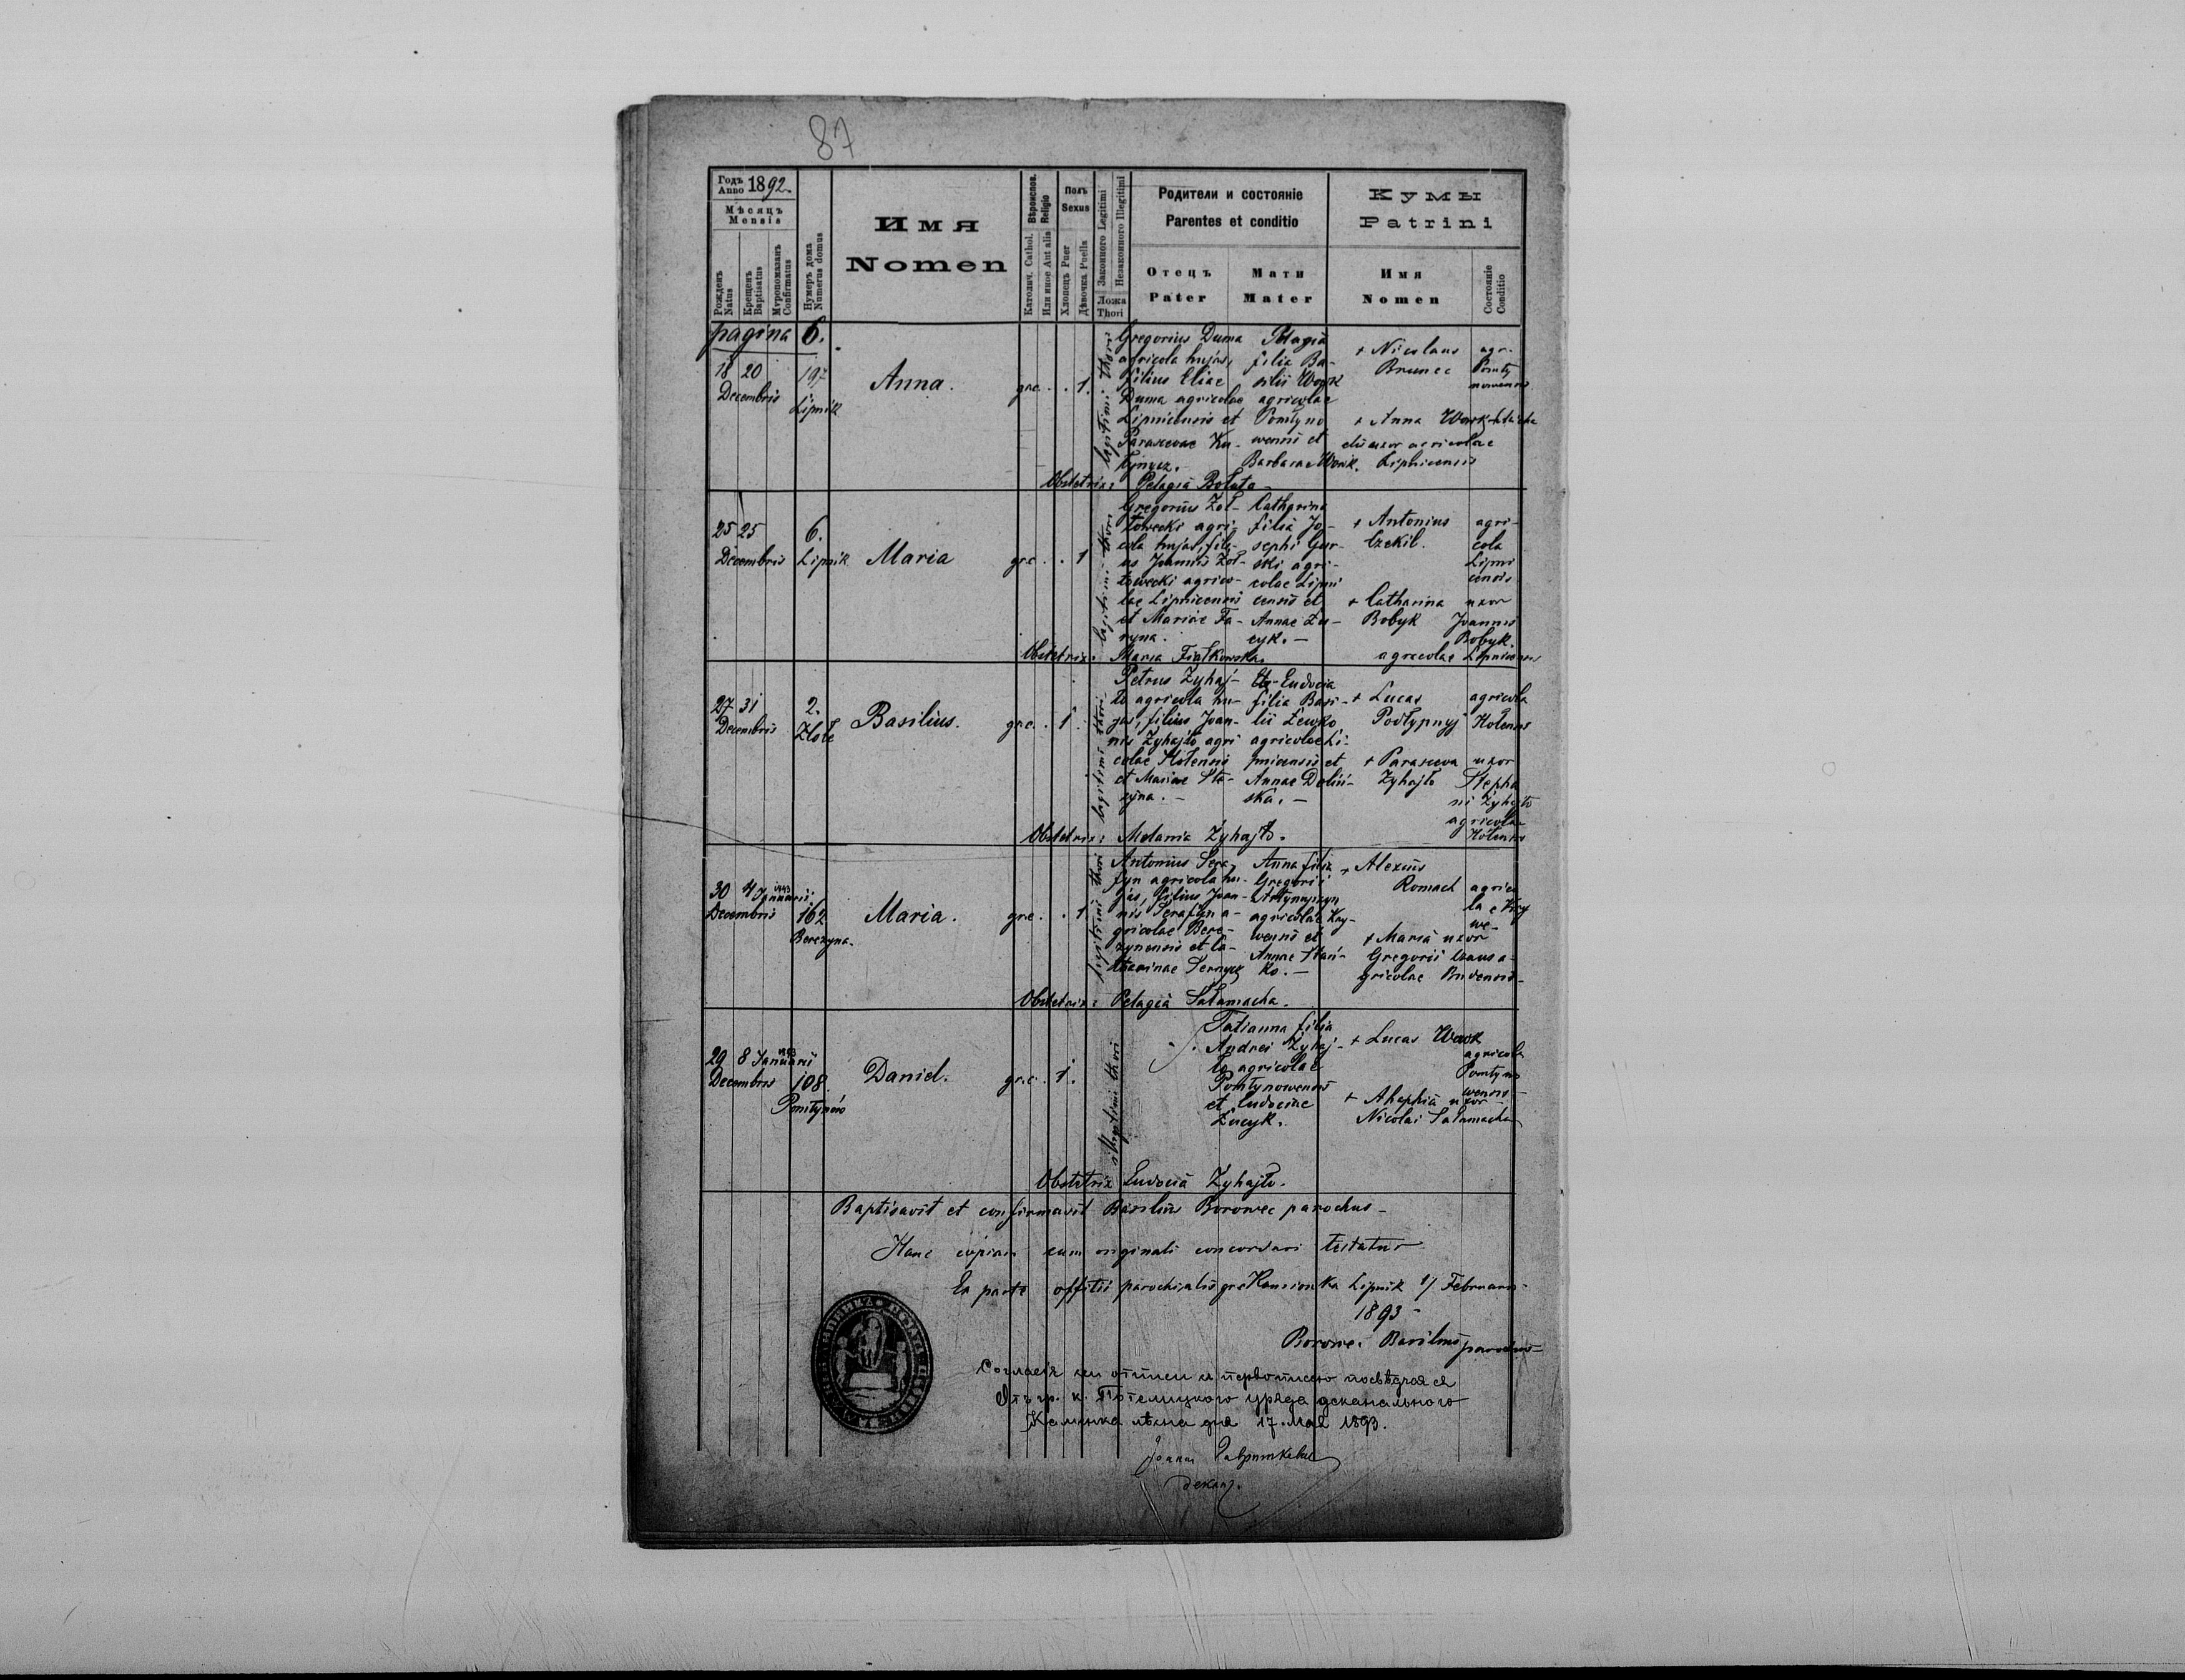 87
Годъ Anno 1892.
Мѣсяцъ
Mensis
Рожденъ Natus
Крещенъ Baptisatus
Мѵропомазанъ Confirmatus
Нумеръ дома Numerus domus
Имя
Nomen
Вѣроиспов. Religio
Католич. Cathol.
Или иное Aut alia
Полъ
Sexus
Хлопецъ Puer
Дѣвочка Puella
Законного Legitimi
Незаконного Illegitimi
Ложа
Thori
Родители и состояніе
Parentes et conditio
Отецъ
Pater
Мати
Mater
Кумы
Patrini
Имя
Nomen
Состояніе
Conditio
pagina 6.
18 20
Decembris
197
Lipnik
Anna.
grc. . . 1.
legitimi thori
Gregorius Duma
agricola hujas,
filius Eliae
Duma agricolae
Lipnicensis et
Parascevae
Pelagia
filia Ba-
silii Work
agricolae
Pomłyno
wensis et
Barbarae Work.
+ Nicolaus
agr.
+ Anna Work
uxor agricolae
Lipnicensis
Obstetrix: Pelagia
25 25
Decembris
6.
Lipnik
Maria
grc . . 1
legitimi thori
Gregorius Zoł-
towecki agri-
cola hujas, fili-
us Joannis Zoł-
towecki agrico-
lae Lipnicensis
et Mariae Fa-
ryna.
Catharina
filia Jo-
sephi Gur-
ski agri-
colae Lipni
censis et
Annae Zu-
cyk. -
+ Antonius
Czekil.
agri-
cola
Lipni
censis
+ Catharina
Bobyk
uxor
Joannis
Bobyk.
agricolae Lipnicensis
Obstetrix: Maria Fiałkowska.
27 31
Decembris
2.
Basilius.
grc . 1.
legitimi thori
Petrus Zyhaj-
ło agricola hu-
jas, filius Joan-
nis Zyhajło agri
colae Hołensis
et Mariae
Eudocia
filia Basi-
lii Lewko
agricolae Li-
pnicensis et
Annae Doliń-
ska. -
+ Lucas
Podłypnyj
agricola
Hołensis
+ Parasceva
Zyhajło
uxor
Stepha
ni Zyhajło
agricolae
Hołensis
Obstetrix: Melania Zyhajło.
30 4 Januarii 1893
Decembris
162
Berezyna.
Maria.
grc. . . 1.
legitimi thori
Antonius Sera-
fyn agricola hu-
jas, filius Joan-
nis Serafyn a-
gricolae Bere-
zynensis et Ca-
tharinae
Anna filia
Gregorii
agricolae Kry-
wensis et
Annae
+ Alexius
Romach
+ Maria uxor
Gregorii
gricolae
Obstetrix: Pelagia Sałamacha.
29 8 Januarii 1893
Decembris
108.
Pomłynów
Daniel.
grc. . 1.
illegitimi thori
Tatianna filia
Andrei Zyhaj-
ło agricolae
Pomłynowensis
et Eudociae
Zucyk.
+ Lucas Work
agricola
Pomłyno
wensis
+ Ahaphia uxor
Nicolai Sałamacha
Obstetrix Eudocia Zyhajło.
Baptisavit et confirmavit Basilius Borowec parochus -
Hanc copiam cum originali concordari testatur
Ex parte offitii parochialis gr. Kamionka Lipnik 1/ Februarii
1893 -
Borowec Basilius parochus
отъ гр. к. Потелицкого уряда деканального
дня 17. мая 1893.
декан.